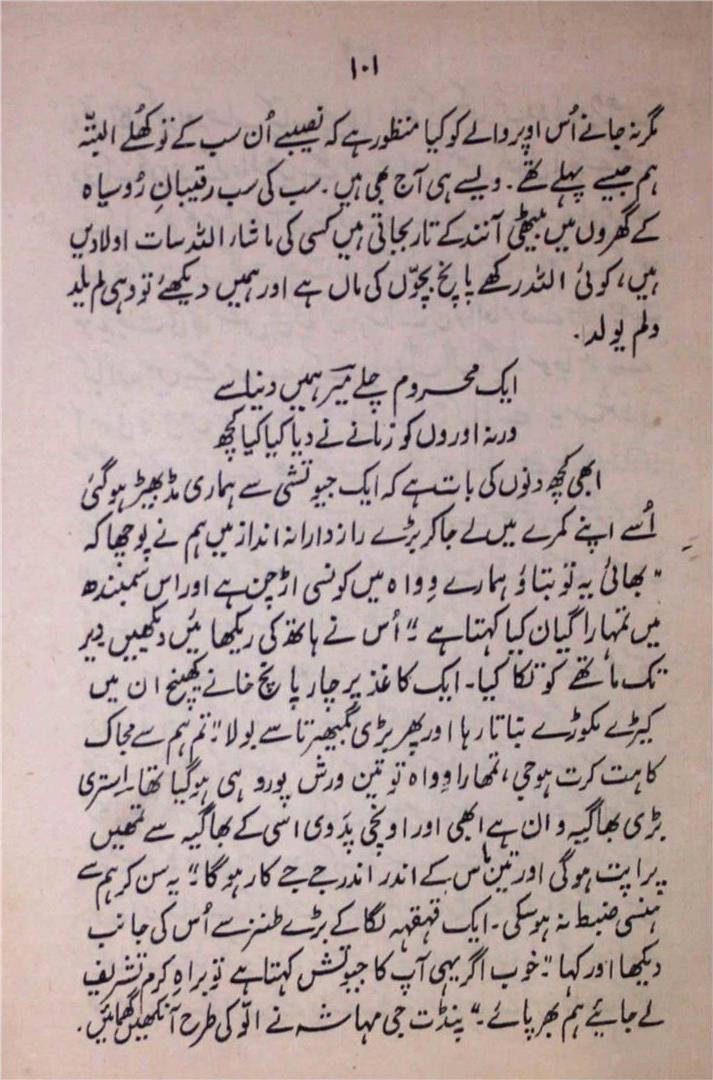 ۱۰۱
مگر نہ جانے اُس اوپر والے کو کیا منظور ہے کہ نصیبے اُن سب کے تو کھُلے البتّہ
ہم جیسے پہلے تھے۔ ویسے ہی آج بھی ہیں۔ سب کی سب رقیبانِ رُوسیاہ
کے گھروں میں بیٹھی آنند کے تار بجاتی ہیں کسی کی ماشاراللہ سات اولادیں
ہیں، کوئی اللہ رکھے پانچ بچّوں کی ماں ہے اور ہمیں دیکھئے تو وہی لم یلد
ولم یولد۔
ایک محروم چلے میرؔ ہمیں دنیا سے
ورنہ اوروں کو زمانے نے دیا کیا کیا کچھ
ابھی کچھ دنوں کی بات ہے کہ ایک جیوتشی سے ہماری مڈبھیڑ ہوگئی
اُسے اپنے کمرے میں لے جاکر بڑے رازدارانہ انداز میں ہم نے پوچھا کہ
"بھائی یہ تو بتاؤ ہمارے وِواہ میں کونسی اڑچن ہے اور اس سمبندھ
میں تمہارا گیان کیا کہتا ہے۔" اُس نے ہاتھ کی ریکھائیں دیکھیں دیر
تک ماتھے کو تکا کیا۔ ایک کاغذ پر چار پانچ خانے کھینچ ان میں
کیڑے مکوڑے بناتا رہا اور پھر بڑی گمبھیرتا سے بولا۔ "تم ہم سے مجاک
کاہت کرت ہوجی، تمھارا وِواہ تو تین ورش پورو ہی ہوگیا تھا۔ اِستری
بڑی بھاگیہ وان ہے ابھی اور اونچی پدَوی اسی کے بھاگیہ سے تمھیں
پراپت ہوگی اور تین ماس کے اندر اندر جے جے کار ہوگا۔" یہ سن کر ہم سے
ہنسی ضبط نہ ہوسکی۔ ایک قہقہہ لگا کے بڑے طنز سے اُس کی جانب
دیکھا اور کہا۔ "خوب اگر یہی آپ کا جیوتش کہتا ہے تو براہِ کرم تشریف
لے جائیے ہم بھر پائے۔" پنڈت جی مہاشہ نے الّو کی طرح آنکھیں گھمائیں۔